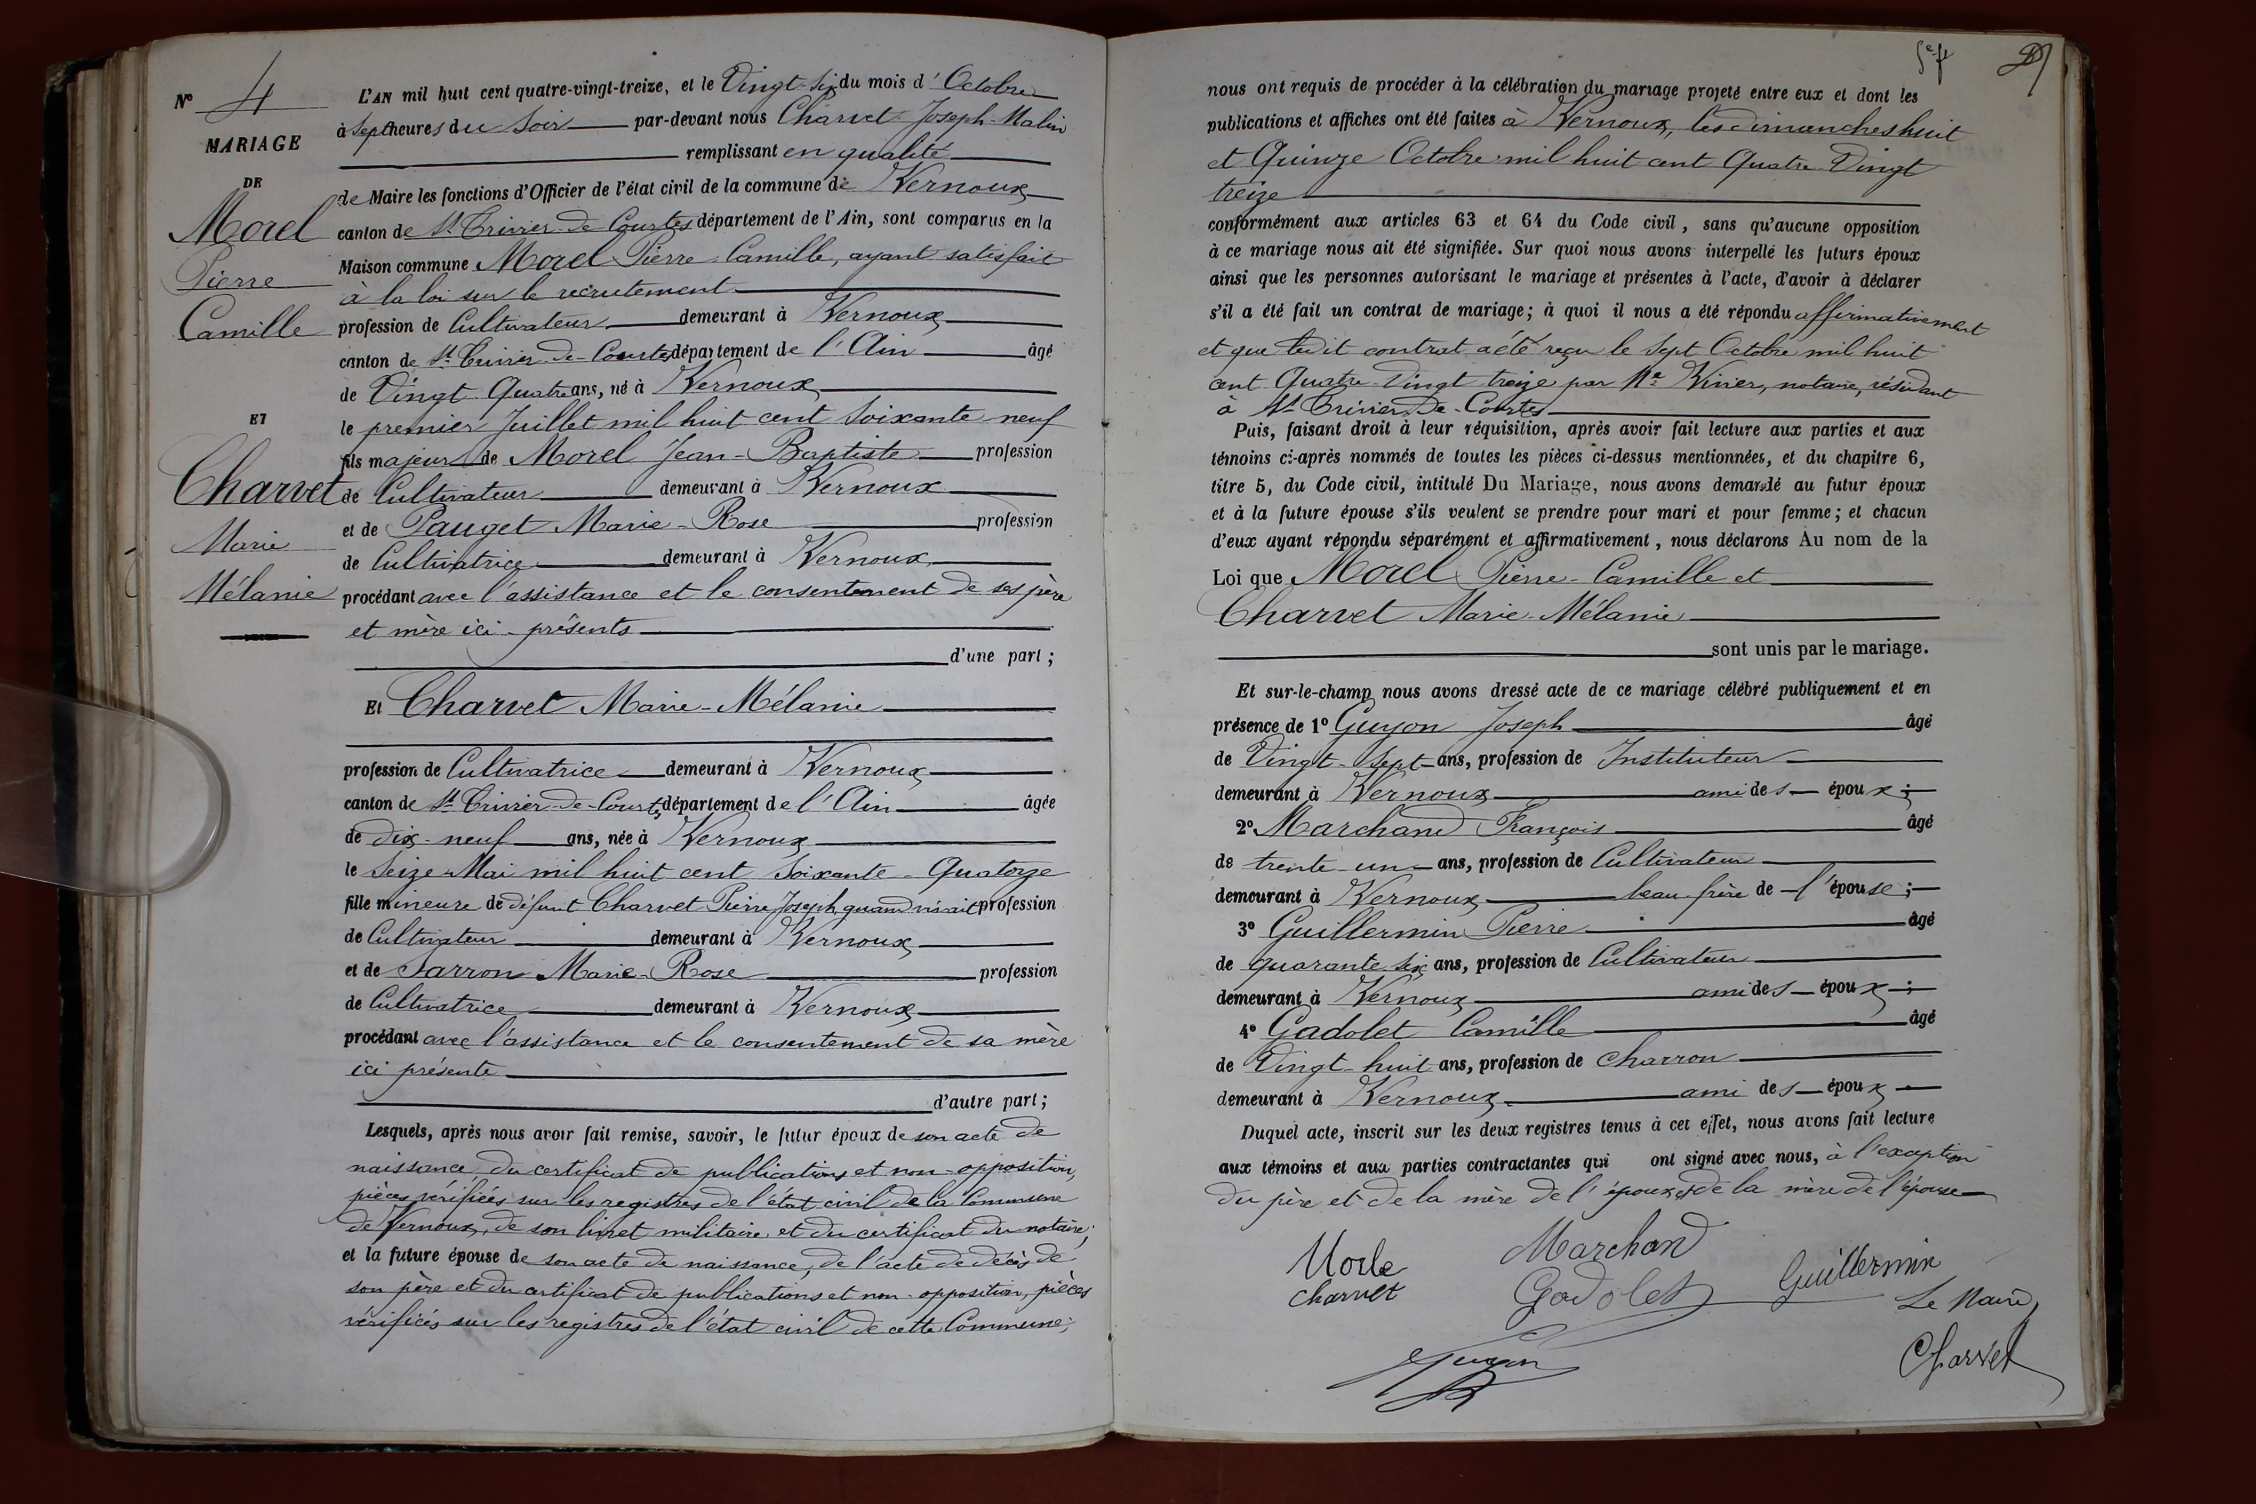 N° 4
MARIAGE
DE
Morel
Pierre
Camille
ET
Charvet
Marie
Mélanie
L'AN mil huit cent quatre-vingt-treize, et le Vingt-six du mois d'Octobre
à Sept heures du Soir par-devant nous Charvet Joseph-Malin
remplissant en qualité
de Maire les fonctions d'Officier de l'état civil de la commune de Vernoux
canton de St Trivier-de-Courtes département de l'Ain, sont comparus en la
Maison commune Morel Pierre-Camille, ayant satisfait
à la loi sur le recrutement
profession de Cultivateur demeurant à Vernoux
canton de St Trivier-de-Courtes département de l'Ain âgé
de Vingt-Quatre ans, né à Vernoux
le premier Juillet mil huit cent Soixante neuf
fils majeur de Morel Jean-Baptiste profession
de Cultivateur demeurant à Vernoux
et de Pauget Marie-Rose profession
de Cultivatrice demeurant à Vernoux
procédant avec l'assistance et le consentement de ses père
et mère ici-présents
d'une part;
Et Charvet Marie-Mélanie
profession de Cultivatrice demeurant à Vernoux
canton de St Trivier-de-Courtes département de l'Ain âgée
de dix-neuf ans, née à Vernoux
le Seize Mai mil huit cent Soixante-Quatorze
fille mineure de défunt Charvet Pierre Joseph, quand vivait profession
de Cultivateur demeurant à Vernoux
et de Sarron Marie-Rose profession
de Cultivatrice demeurant à Vernoux
procédant avec l'assistance et le consentement de sa mère
ici présente
d'autre part;
Lesquels, après nous avoir fait remise, savoir, le futur époux de son acte de
naissance, du certificat de publications et non-opposition,
pièces vérifiées sur les registres de l'état civil de la Commune
de Vernoux, de son livret militaire et du certificat du notaire;
et la future épouse de son acte de naissance, de l'acte de décès de
son père et du certificat de publications et non-opposition, pièces
vérifiées sur les registres de l'état civil de cette Commune;
nous ont requis de procéder à la célébration du mariage projeté entre eux et dont les
publications et affiches ont été faites à Vernoux, les dimanches huit
et Quinze Octobre mil huit cent Quatre-Vingt
treize
conformément aux articles 63 et 64 du Code civil, sans qu'aucune opposition
à ce mariage nous ait été signifiée. Sur quoi nous avons interpellé les futurs époux
ainsi que les personnes autorisant le mariage et présentes à l'acte, d'avoir à déclarer
s'il a été fait un contrat de mariage; à quoi il nous a été répondu affirmativement
et que ledit contrat a été reçu le Sept Octobre mil huit
cent Quatre-Vingt treize par Me Vivier, notaire, résidant
à St Trivier-de-Courtes
Puis, faisant droit à leur réquisition, après avoir fait lecture aux parties et aux
témoins ci-après nommés de toutes les pièces ci-dessus mentionnées, et du chapitre 6,
titre 5, du Code civil, intitulé Du Mariage, nous avons demandé au futur époux
et à la future épouse s'ils veulent se prendre pour mari et pour femme; et chacun
d'eux ayant répondu séparément et affirmativement, nous déclarons Au nom de la
Loi que Morel Pierre-Camille et
Charvet Marie-Mélanie
sont unis par le mariage.
Et sur-le-champ nous avons dressé acte de ce mariage célébré publiquement et en
présence de 1° Guyon Joseph âgé
de Vingt-Sept ans, profession de Instituteur
demeurant à Vernoux ami des époux;
2° Marchand François âgé
de trente-un ans, profession de Cultivateur
demeurant à Vernoux beau-frère de l'épouse;
3° Guillermin Pierre âgé
de quarante six ans, profession de Cultivateur
demeurant à Vernoux ami des époux;
4° Gadolet Camille âgé
de Vingt-huit ans, profession de charron
demeurant à Vernoux ami des époux
Duquel acte, inscrit sur les deux registres tenus à cet effet, nous avons fait lecture
aux témoins et aux parties contractantes qui ont signé avec nous, à l'exception
du père et de la mère de l'époux et de la mère de l'épouse
Morle
Marchand
Guillermin
charvet
Gadolet
Le Maire,
Guyon
Charvet